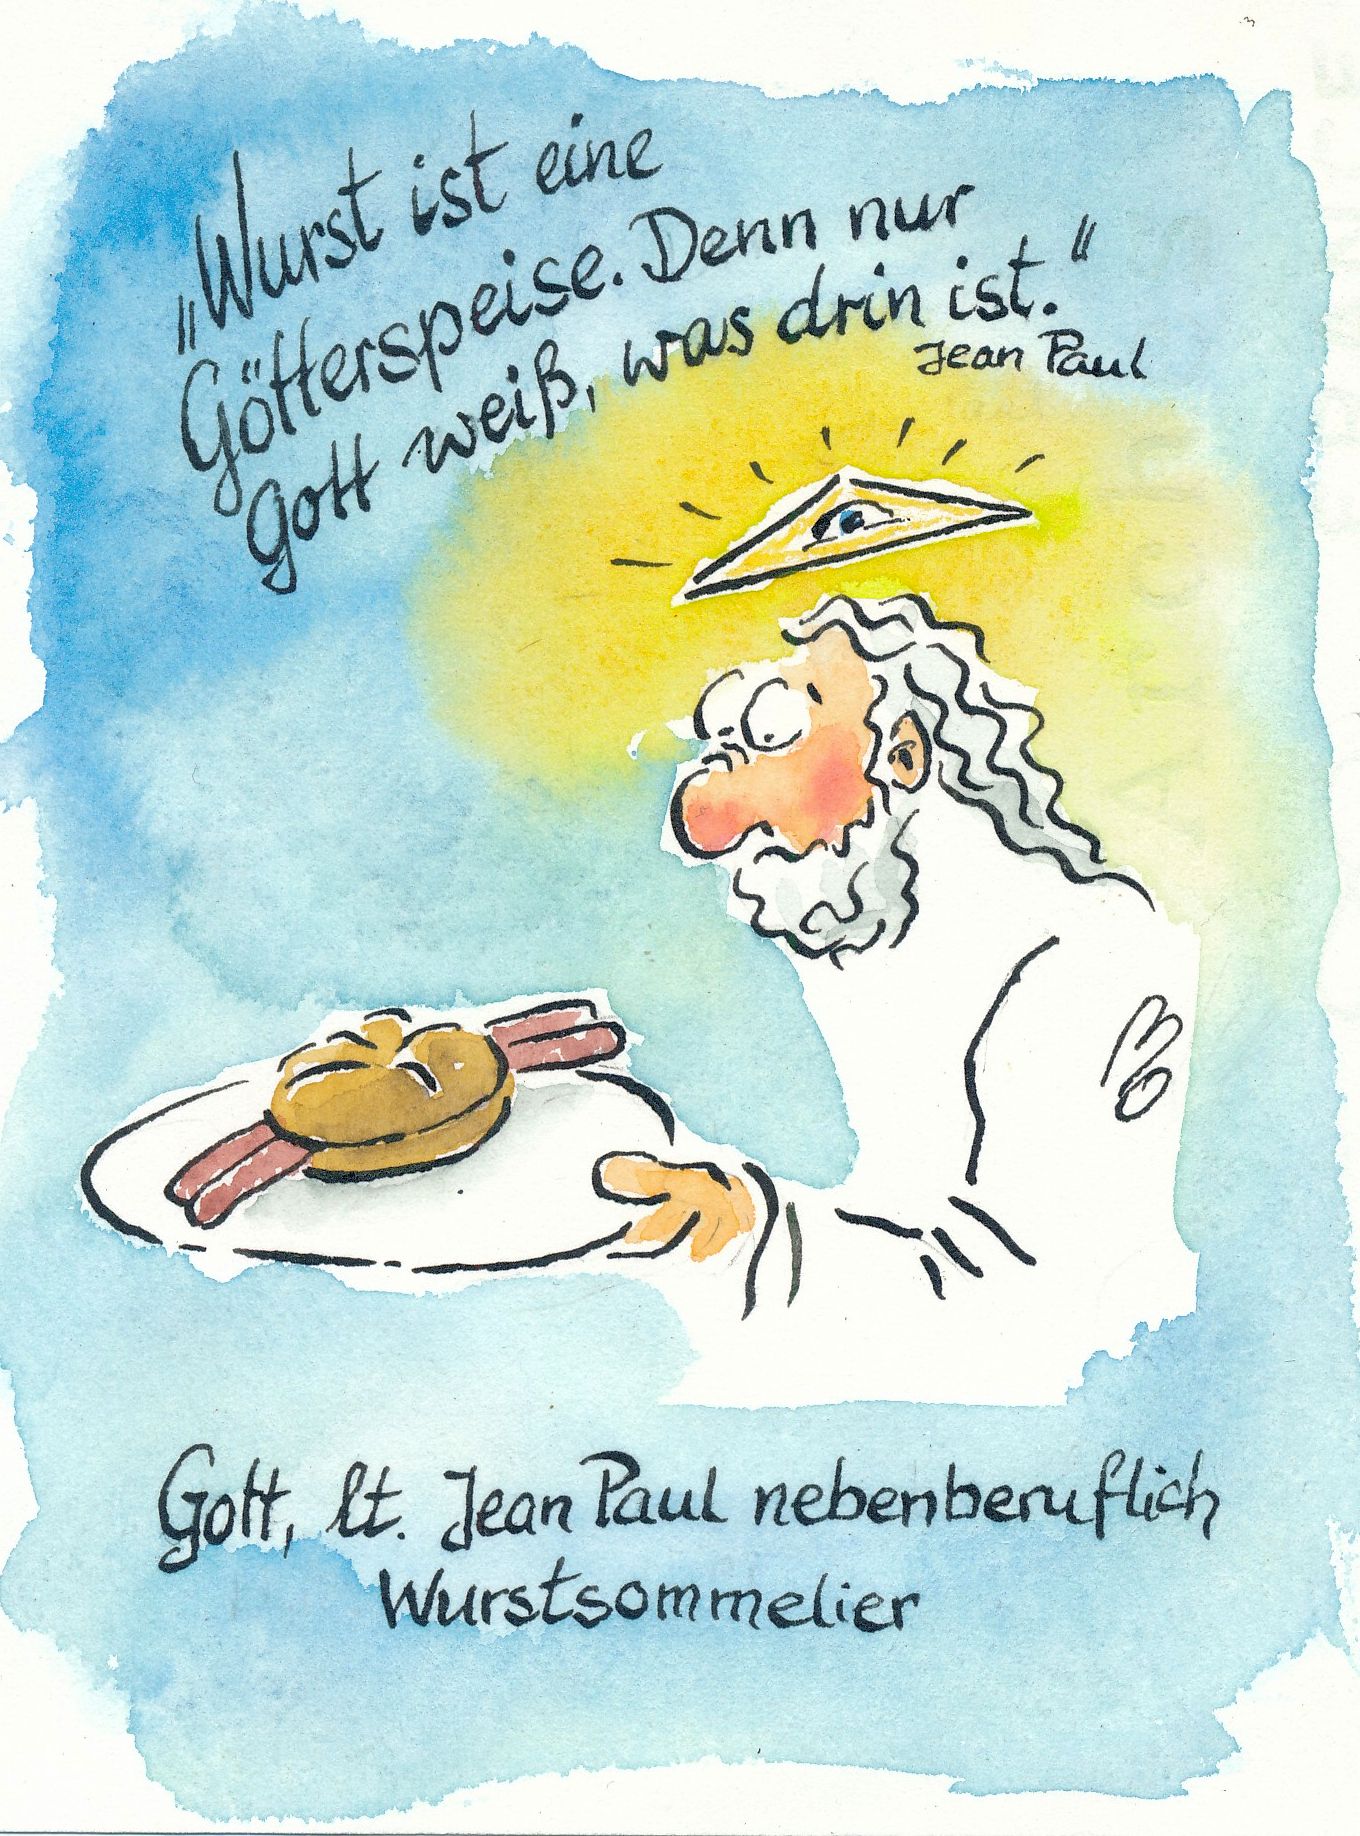 „Wurst ist eine
Götterspeise. Denn nur
Gott weiß, was drin ist.“
Jean Paul
Gott, lt. Jean Paul nebenberuflich
Wurstsommelier